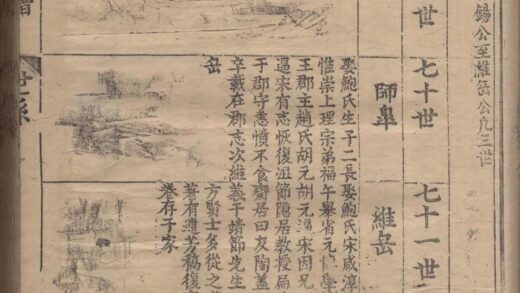 錫公至維岳公凡三世
世
七十世
七十一世
師皐
維岳
娶鮑氏生子二長
惟崇上理宗弟福
王郡主趙氏胡元
過宋有志恢復沮
于郡守恚憤不食
卒載在郡志次維
岳
娶鮑氏宋咸淳
午舉省元學
胡元宋因兄
節隱居教授
齋居曰友陶蓋
義于靖節先生
方賢士多從之
著有芳稿復
卷存于家
譜
世系